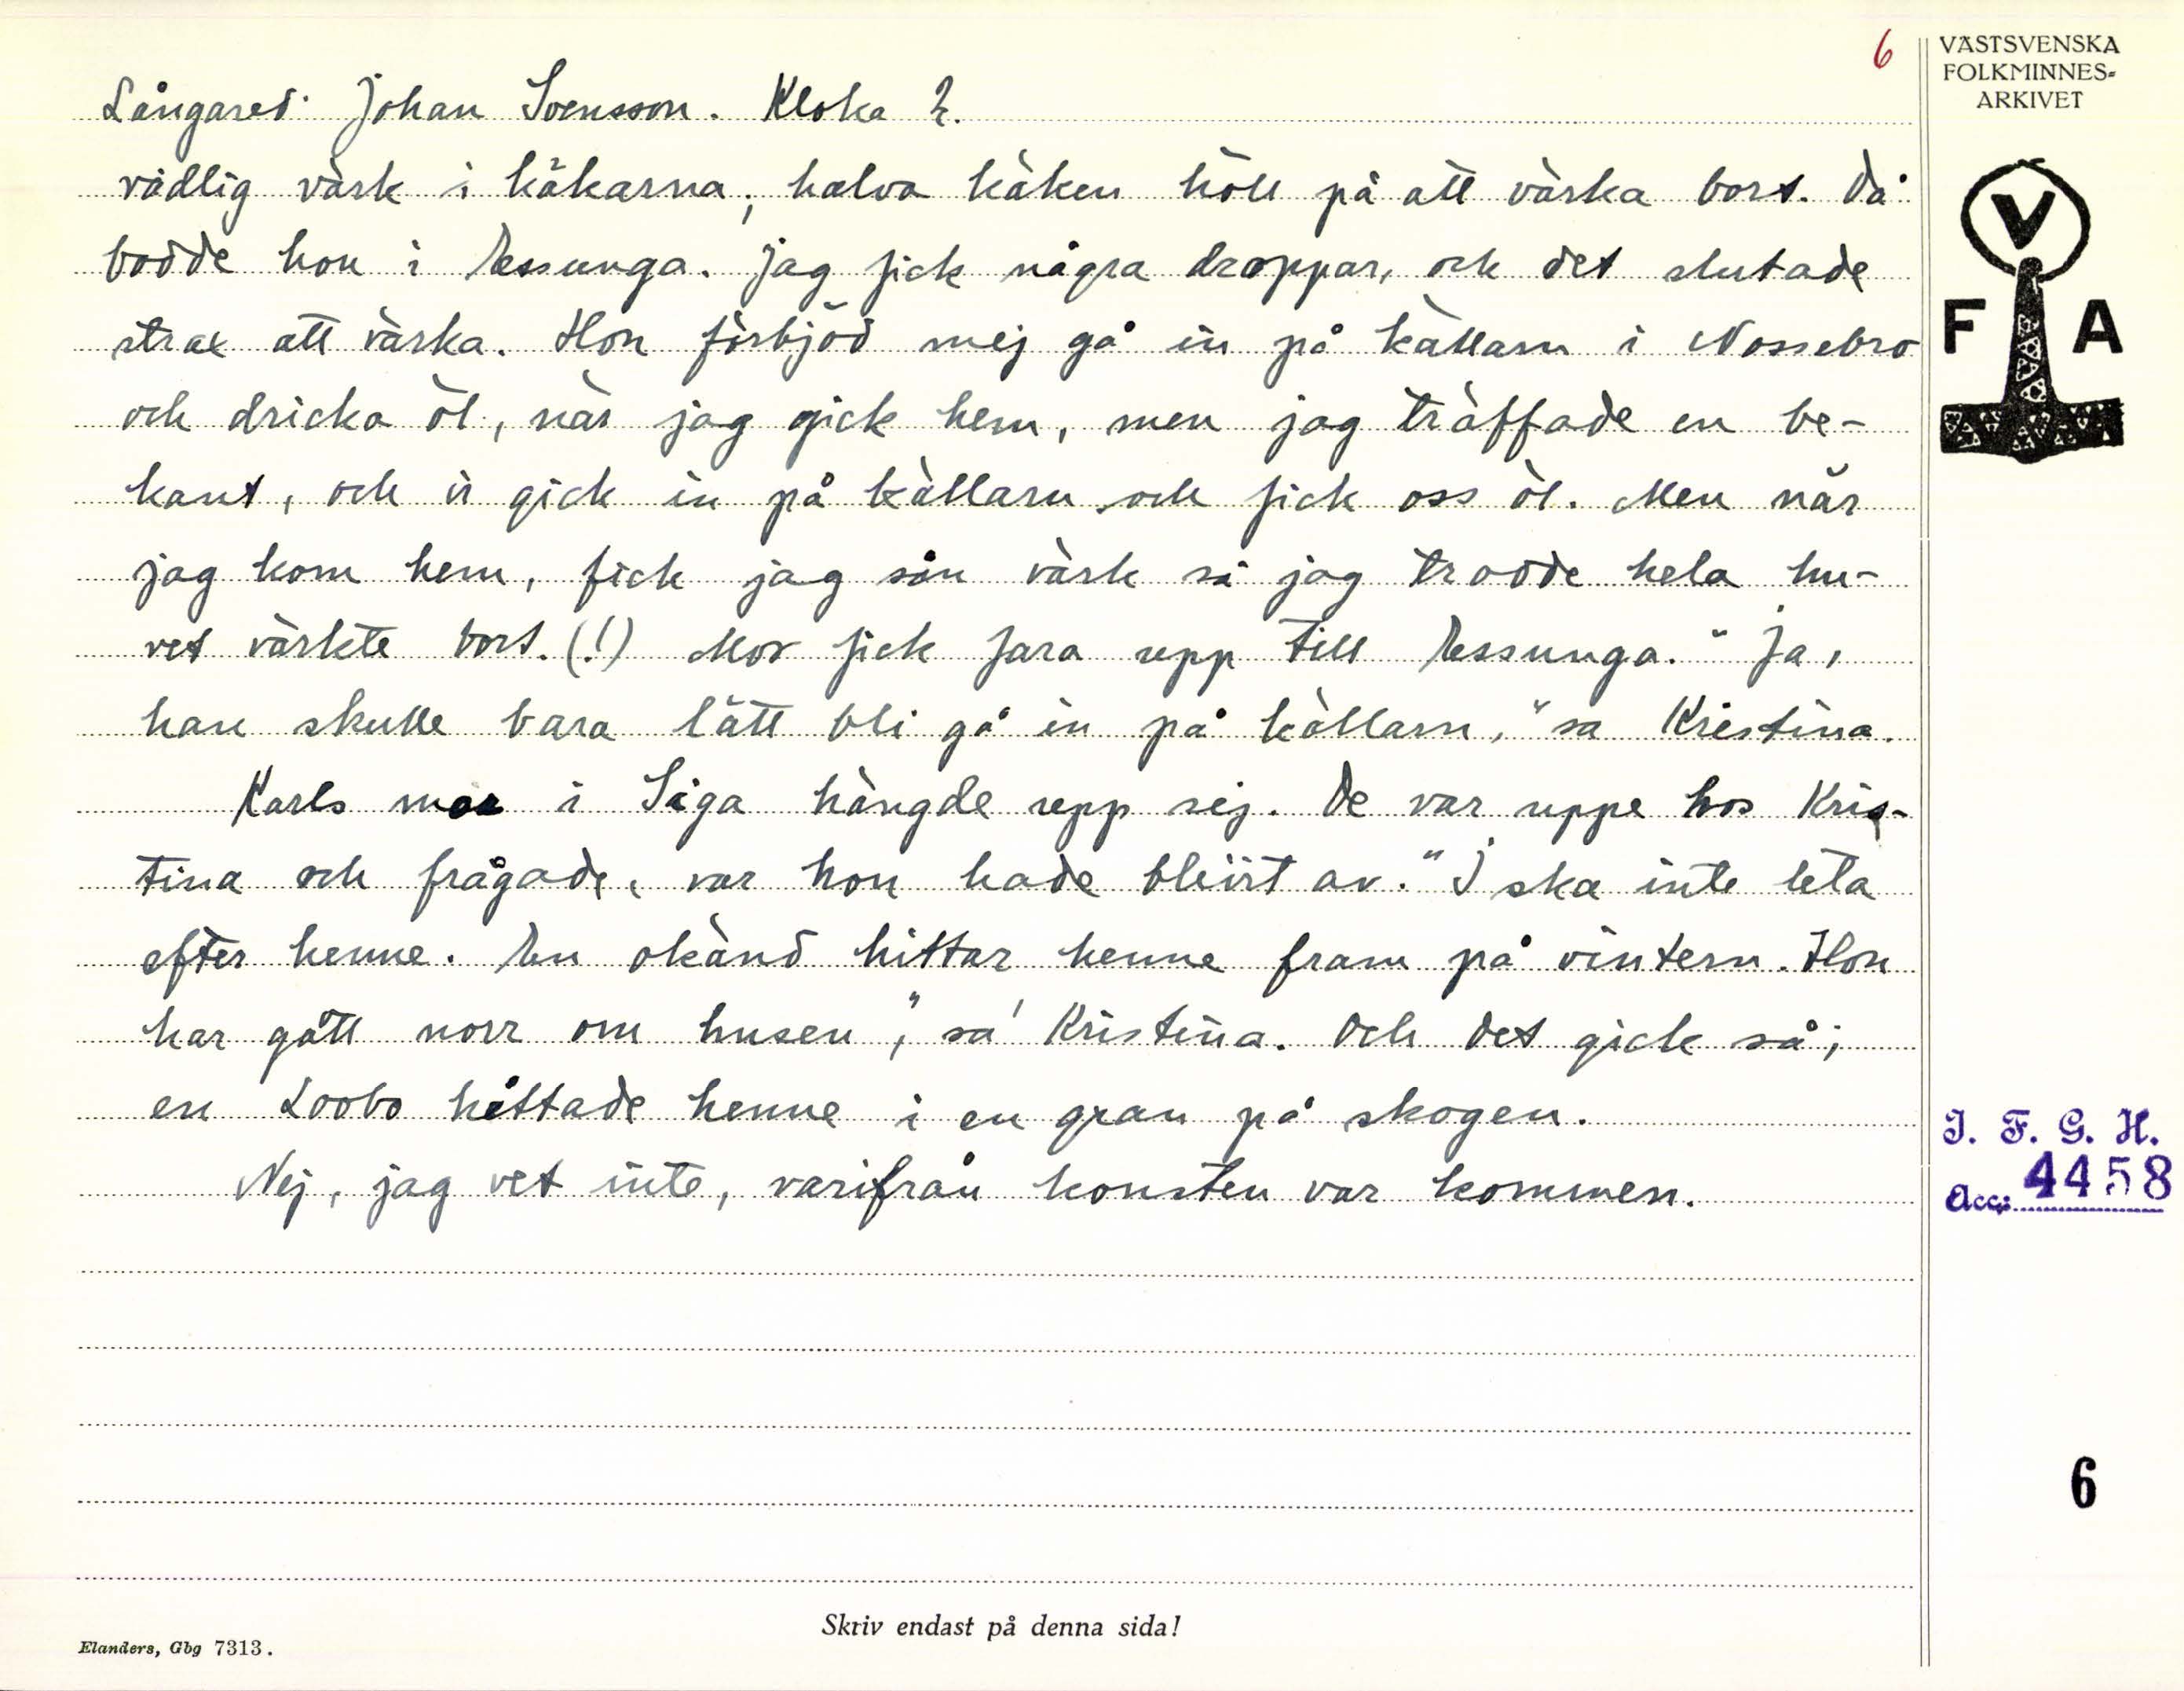 6
VÄSTSVENSKA
FOLKMINNES=
ARKIVET
Långared. Johan Svensson. Kloka 2.
rådlig värk i käkarna; halva käken höll på att värka bort. Då
bodde hon i Essunga. Jag fick några droppar, och det slutade
strax att värka. Hon förbjöd mej gå in på källarn i Nossebro
och dricka öl, när jag gick hem, men jag träffade en be-
kant, och vi gick in på källarn och fick oss öl. Men när
jag kom hem, fick jag sån värk så jag trodde hela hu-
vet värkte bort. (!) Mor fick fara upp till Essunga. "Ja,
han skulle bara lätt bli gå in på källarn," sa Kristina.
Karls mor i Siga hängde upp sej. De var uppe hos Kris-
tina och frågade, var hon hade blivit av. "I ska inte leta
efter henne. En okänd hittar henne fram på vintern. Hon
har gått norr om husen", sa' Kristina. Och det gick så;
en Loobo hittade henne i en gran på skogen.
Nej, jag vet inte, varifrån konsten var kommen.
V
F A
I. F. G. H.
Acc: 4458
6
Skriv endast på denna sida!
Elanders, Gbg 7313.